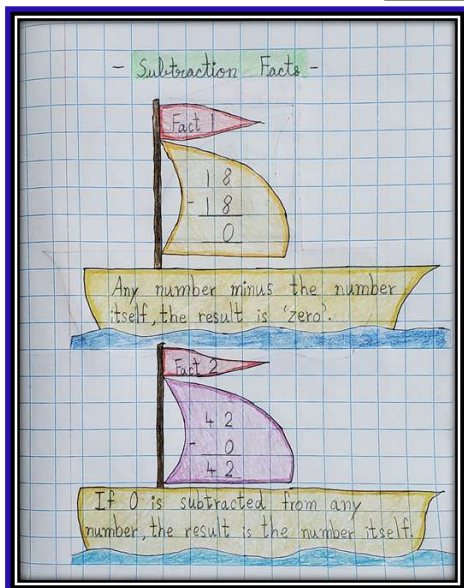 - Subtraction Facts -
Fact 1
1 8
- 1 8
0
Any number minus the number
itself, the result is 'zero'.
Fact 2
4 2
- 0
4 2
If 0 is subtracted from any
number, the result is the number itself.